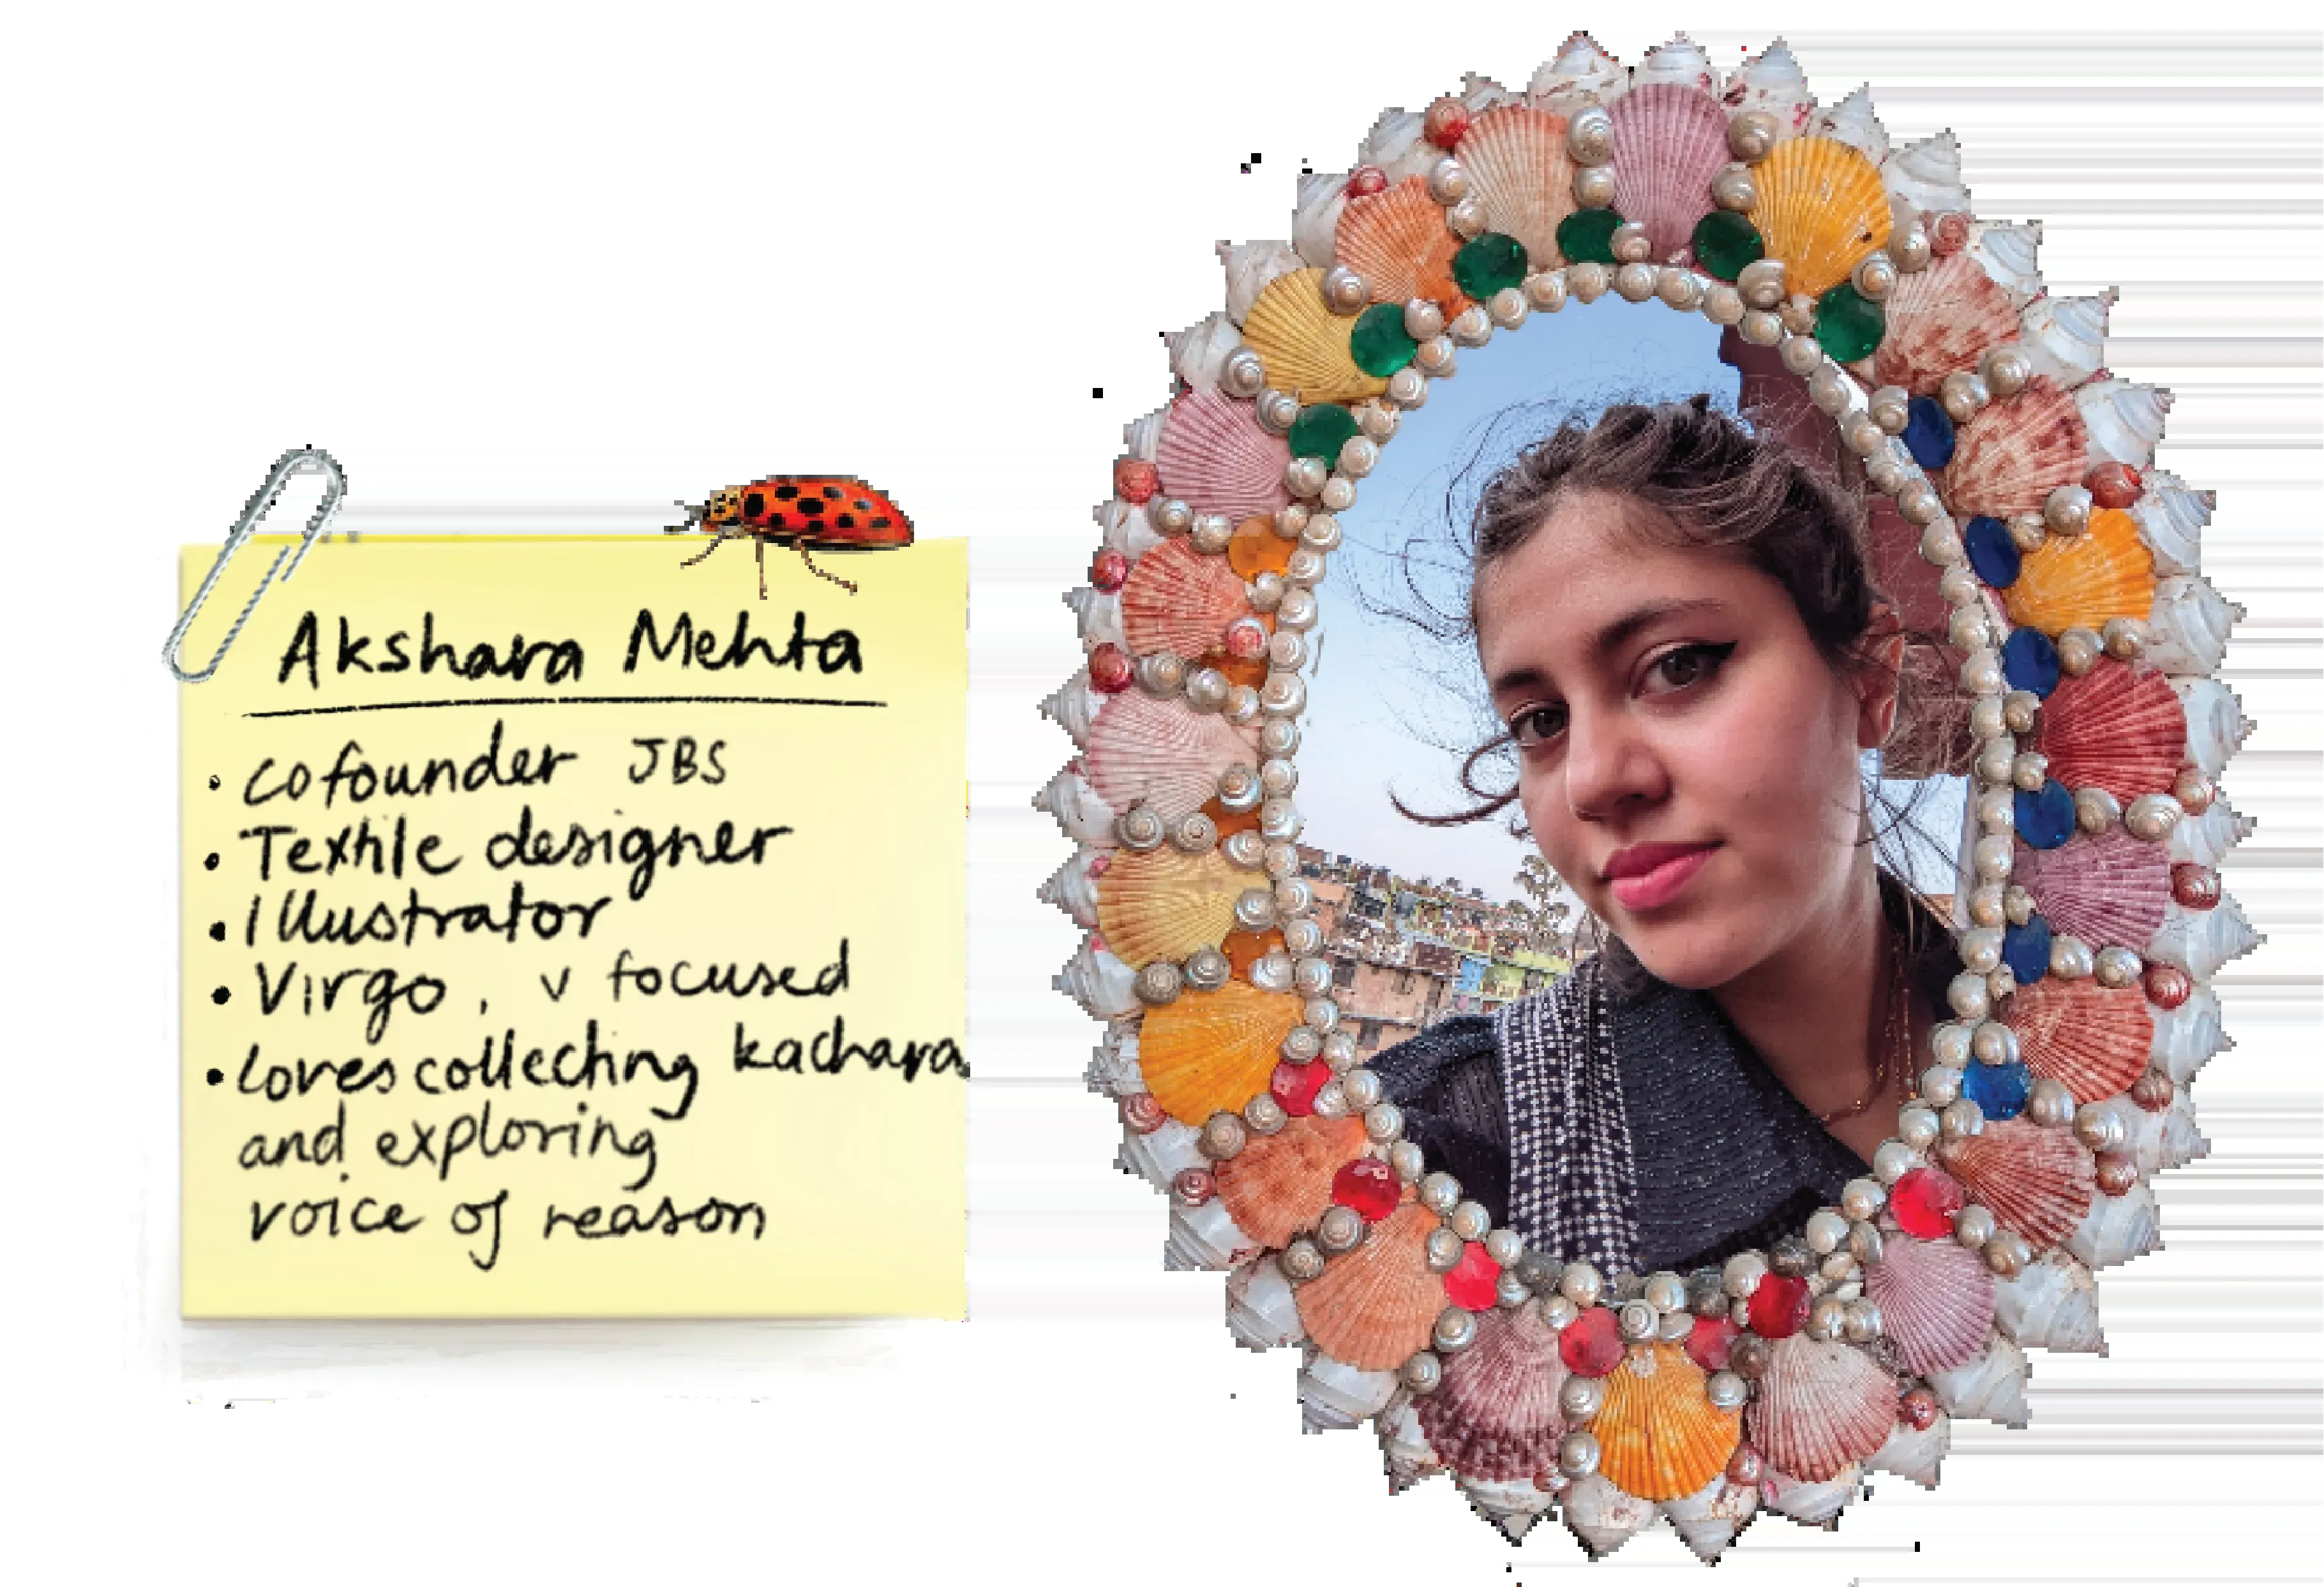 Akshara Mehta
• Cofounder JBS
• Textile designer
• Illustrator
• Virgo, v focused
• Loves collecting kachara
and exploring
voice of reason